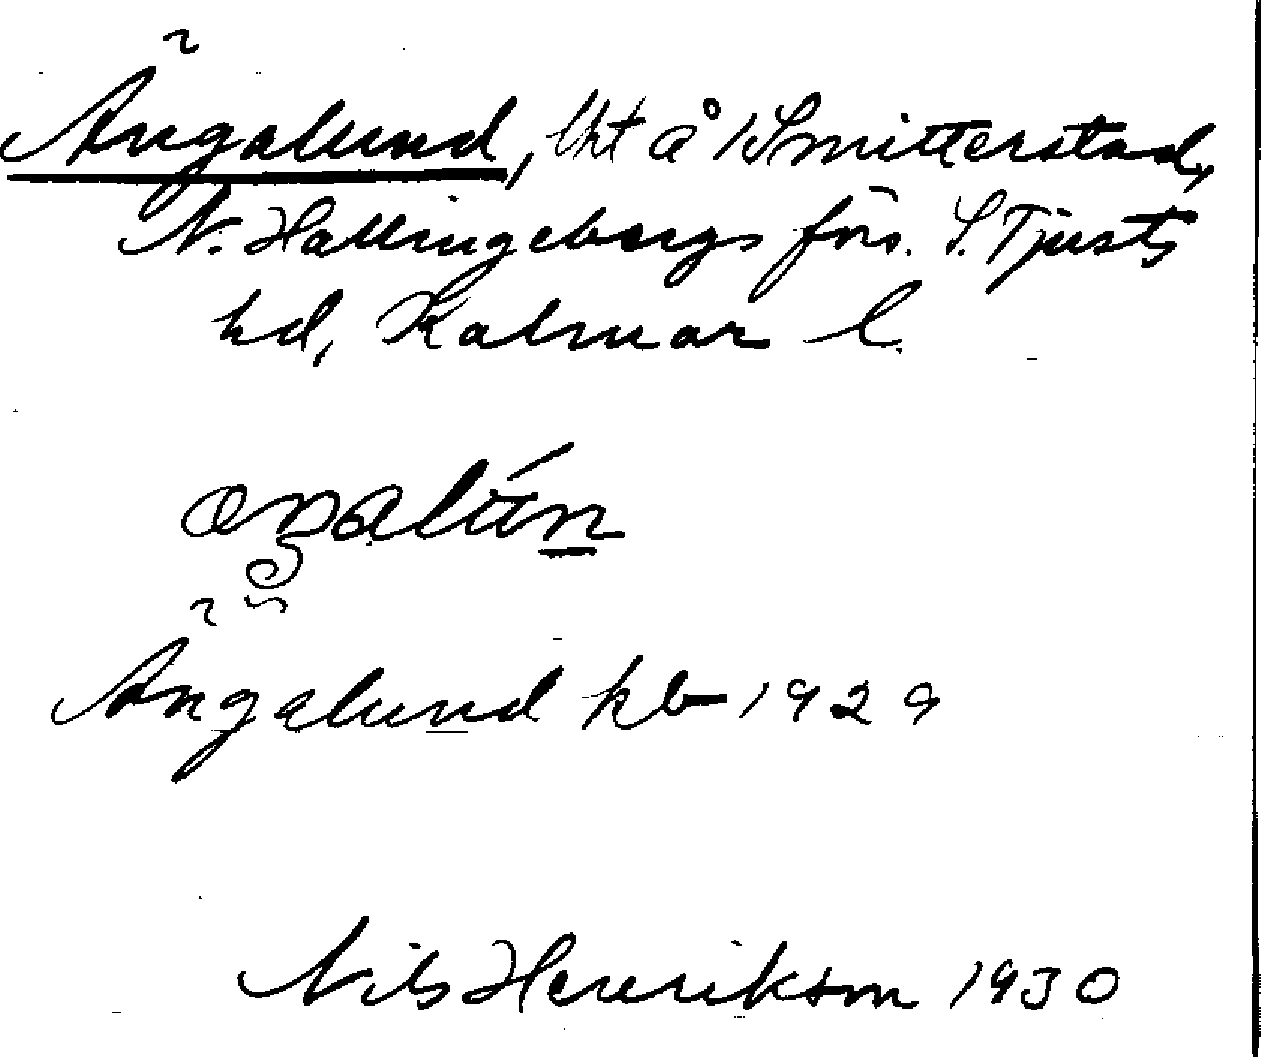 Ängalund, lht å 1 Smitterstad,
N. Hallingebergs förs. S. Tjusts
hd, Kalmar l.
Ängalund kb 1929
Nils Henrikson 1930